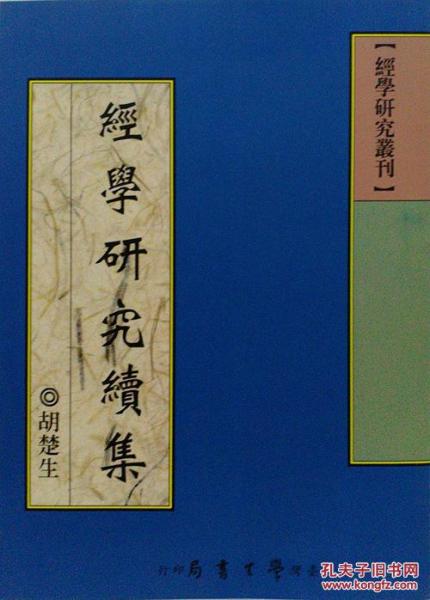 【經學研究叢刊】
經學研究續集
◎胡楚生
學生書局印行
孔夫子旧书网